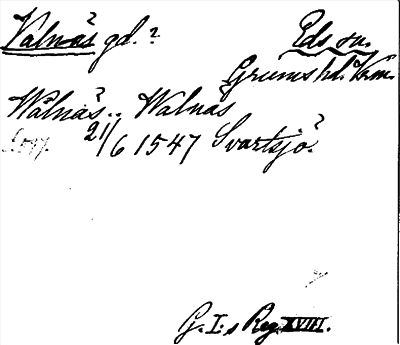 Valnäs gd. ?
Eds sn.
Grums hd. Vrm.
Wålnäs .. Walnäs
21/6 1547 Svartsjö.
G. I:s Reg. XVIII.